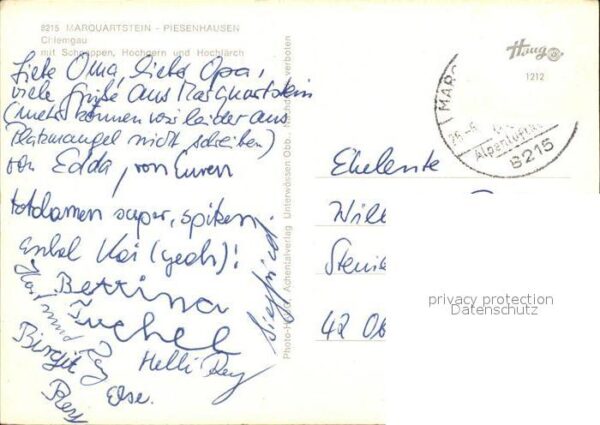 8215 MARQUARTSTEIN - PIESENHAUSEN
Chiemgau
mit Schnappen, Hochgern und Hochlärch
Haug
1212
Liebe Oma, lieber Opa,
viele Grüße aus Marquartstein
(mehr können wir leider aus
Platzmangel nicht schreiben)
von Edda, von Eurem
totalamen super, spitzen
Enkel Kai (yeah)!
Bettina
Tuchel
Hartmut Rey
Birgit
Rey
Else.
Helli Rey
Siegfried
Photo-H Achentalverlag Unterwössen Obb. Nachdruck verboten
MARQ
Alpenluftku
8215
Eheleute
Will
42 Ob
privacy protection
Datenschutz